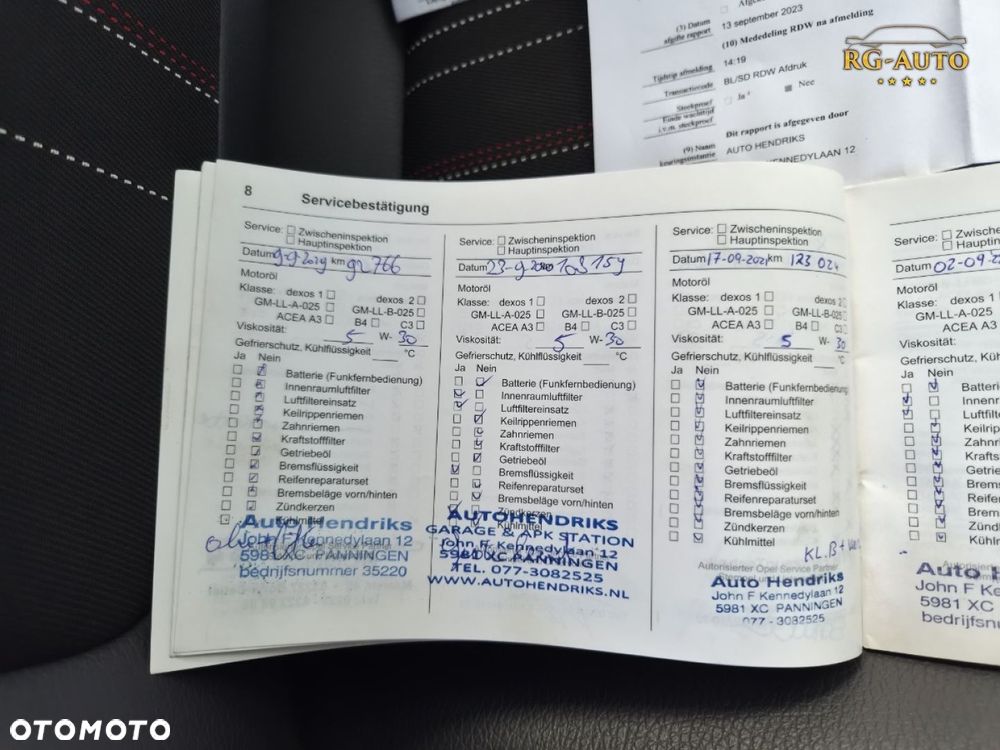 Afgeke
(3) Datum
afgifte rapport
13 september 2023
(10) Mededeling RDW na afmelding
Tijdstip afmelding
14:19
Transactiecode
BL/SD RDW Afdruk
Steekproef
Ja
Nee
Einde wachttijd
i.v.m. steekproef
Dit rapport is afgegeven door
(9) Naam
keuringsinstantie
AUTO HENDRIKS
KENNEDYLAAN 12
RG-AUTO
8
Servicebestätigung
Service: Zwischeninspektion
Hauptinspektion
Datum 9-9-2019 km 92766
Motoröl
Klasse: dexos 1 dexos 2
GM-LL-A-025 GM-LL-B-025
ACEA A3 B4 C3
Viskosität: 5 W- 30
Gefrierschutz, Kühlflüssigkeit °C
Ja Nein
Batterie (Funkfernbedienung)
Innenraumluftfilter
Luftfiltereinsatz
Keilrippenriemen
Zahnriemen
Kraftstofffilter
Getriebeöl
Bremsflüssigkeit
Reifenreparaturset
Bremsbeläge vorn/hinten
Zündkerzen
Kühlmittel
Auto Hendriks
John F Kennedylaan 12
5981 XC PANNINGEN
bedrijfsnummer 35220
Service: Zwischeninspektion
Hauptinspektion
Datum 23-9
Motoröl
Klasse: dexos 1 dexos 2
GM-LL-A-025 GM-LL-B-025
ACEA A3 B4 C3
Viskosität: 5 W- 30
Gefrierschutz, Kühlflüssigkeit °C
Ja Nein
Batterie (Funkfernbedienung)
Innenraumluftfilter
Luftfiltereinsatz
Keilrippenriemen
Zahnriemen
Kraftstofffilter
Getriebeöl
Bremsflüssigkeit
Reifenreparaturset
Bremsbeläge vorn/hinten
Zündkerzen
Kühlmittel
AUTOHENDRIKS
GARAGE & APK STATION
John F. Kennedylaan 12
5981 XC PANNINGEN
TEL. 077-3082525
WWW.AUTOHENDRIKS.NL
Service: Zwischeninspektion
Hauptinspektion
Datum 17-09-2021 km 123 024
Motoröl
Klasse: dexos 1 dexos 2
GM-LL-A-025 GM-LL-B-025
ACEA A3 B4 C3
Viskosität: 5 W- 30
Gefrierschutz, Kühlflüssigkeit °C
Ja Nein
Batterie (Funkfernbedienung)
Innenraumluftfilter
Luftfiltereinsatz
Keilrippenriemen
Zahnriemen
Kraftstofffilter
Getriebeöl
Bremsflüssigkeit
Reifenreparaturset
Bremsbeläge vorn/hinten
Zündkerzen
Kühlmittel
Autorisierter Opel Service Partner
Auto Hendriks
John F Kennedylaan 12
5981 XC PANNINGEN
077 - 3082525
Service: Zwischen
Hauptins
Datum 02-09-2
Motoröl
Klasse: dexos 1
GM-LL-A-025
ACEA A3
Viskosität:
Gefrierschutz, Kühlflüs
Ja Nein
Batteri
Innenr
Luftfilt
Keilrip
Zahnri
Krafts
Getrieb
Brems
Reifen
Brems
Zündk
Kühlm
Auto H
John F K
5981 XC
bedrijfsnu
OTOMOTO